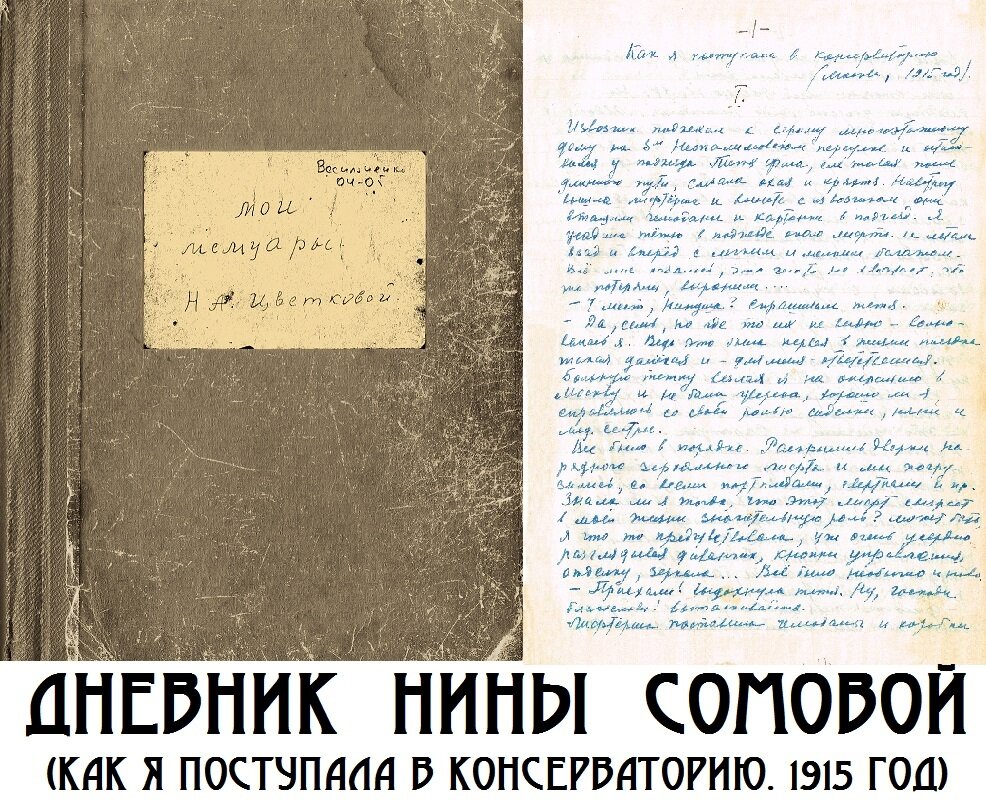 Василиенко
04-05
мои
мемуары
Н А. Цветковой.
-1-
Как я поступала в консерваторию
(Москва, 1915 год).
I.
Извозчик подъехал к серому многоэтажному
дому на 3м Неопалимовском переулке и остано-
вился у подъезда. Тётя Фина, еле живая после
длинного пути, слезала охая и кряхтя. Навстречу
вышла лифтёрша и вместе с извозчиком они
втащили чемоданы и картонки в подъезд. Я
усадила тётю в подъезде около лифта и летала
взад и вперёд с лёгким и мелким багажом.
Всё мне казалось, что что-то не хватает, что-то
же потеряли, выронили...
- 7 мест, Ниндша? спрашивала тётя.
- Да, семь, но где то их не видно - волно-
валась я. Ведь это была первая в жизни поездка
такая далёкая и - для меня - ответственная.
Больную тётку везла я на операцию в
Москву и не была уверена, хорошо ли я
справляюсь со своей ролью сиделки, няни и
мед. сестры.
Всё было в порядке. Раскрылись дверки на-
рядного зеркального лифта и мы погру-
зились, со всеми портпледами, свёртками и пр.
Знала ли я тогда, что этот лифт сыграет
в моей жизни значительную роль? может быть
я что то предчувствовала, уж очень усердно
разглядывая диванчик, кнопки управления,
отделку, зеркала... Всё было необычно и ново.
- Приехали! выдохнула тётя. Ну, господи
благослови! вытаскивайся.
Лифтёрша поставила чемоданы и коробки
ДНЕВНИК НИНЫ СОМОВОЙ
(КАК Я ПОСТУПАЛА В КОНСЕРВАТОРИЮ. 1915 ГОД)